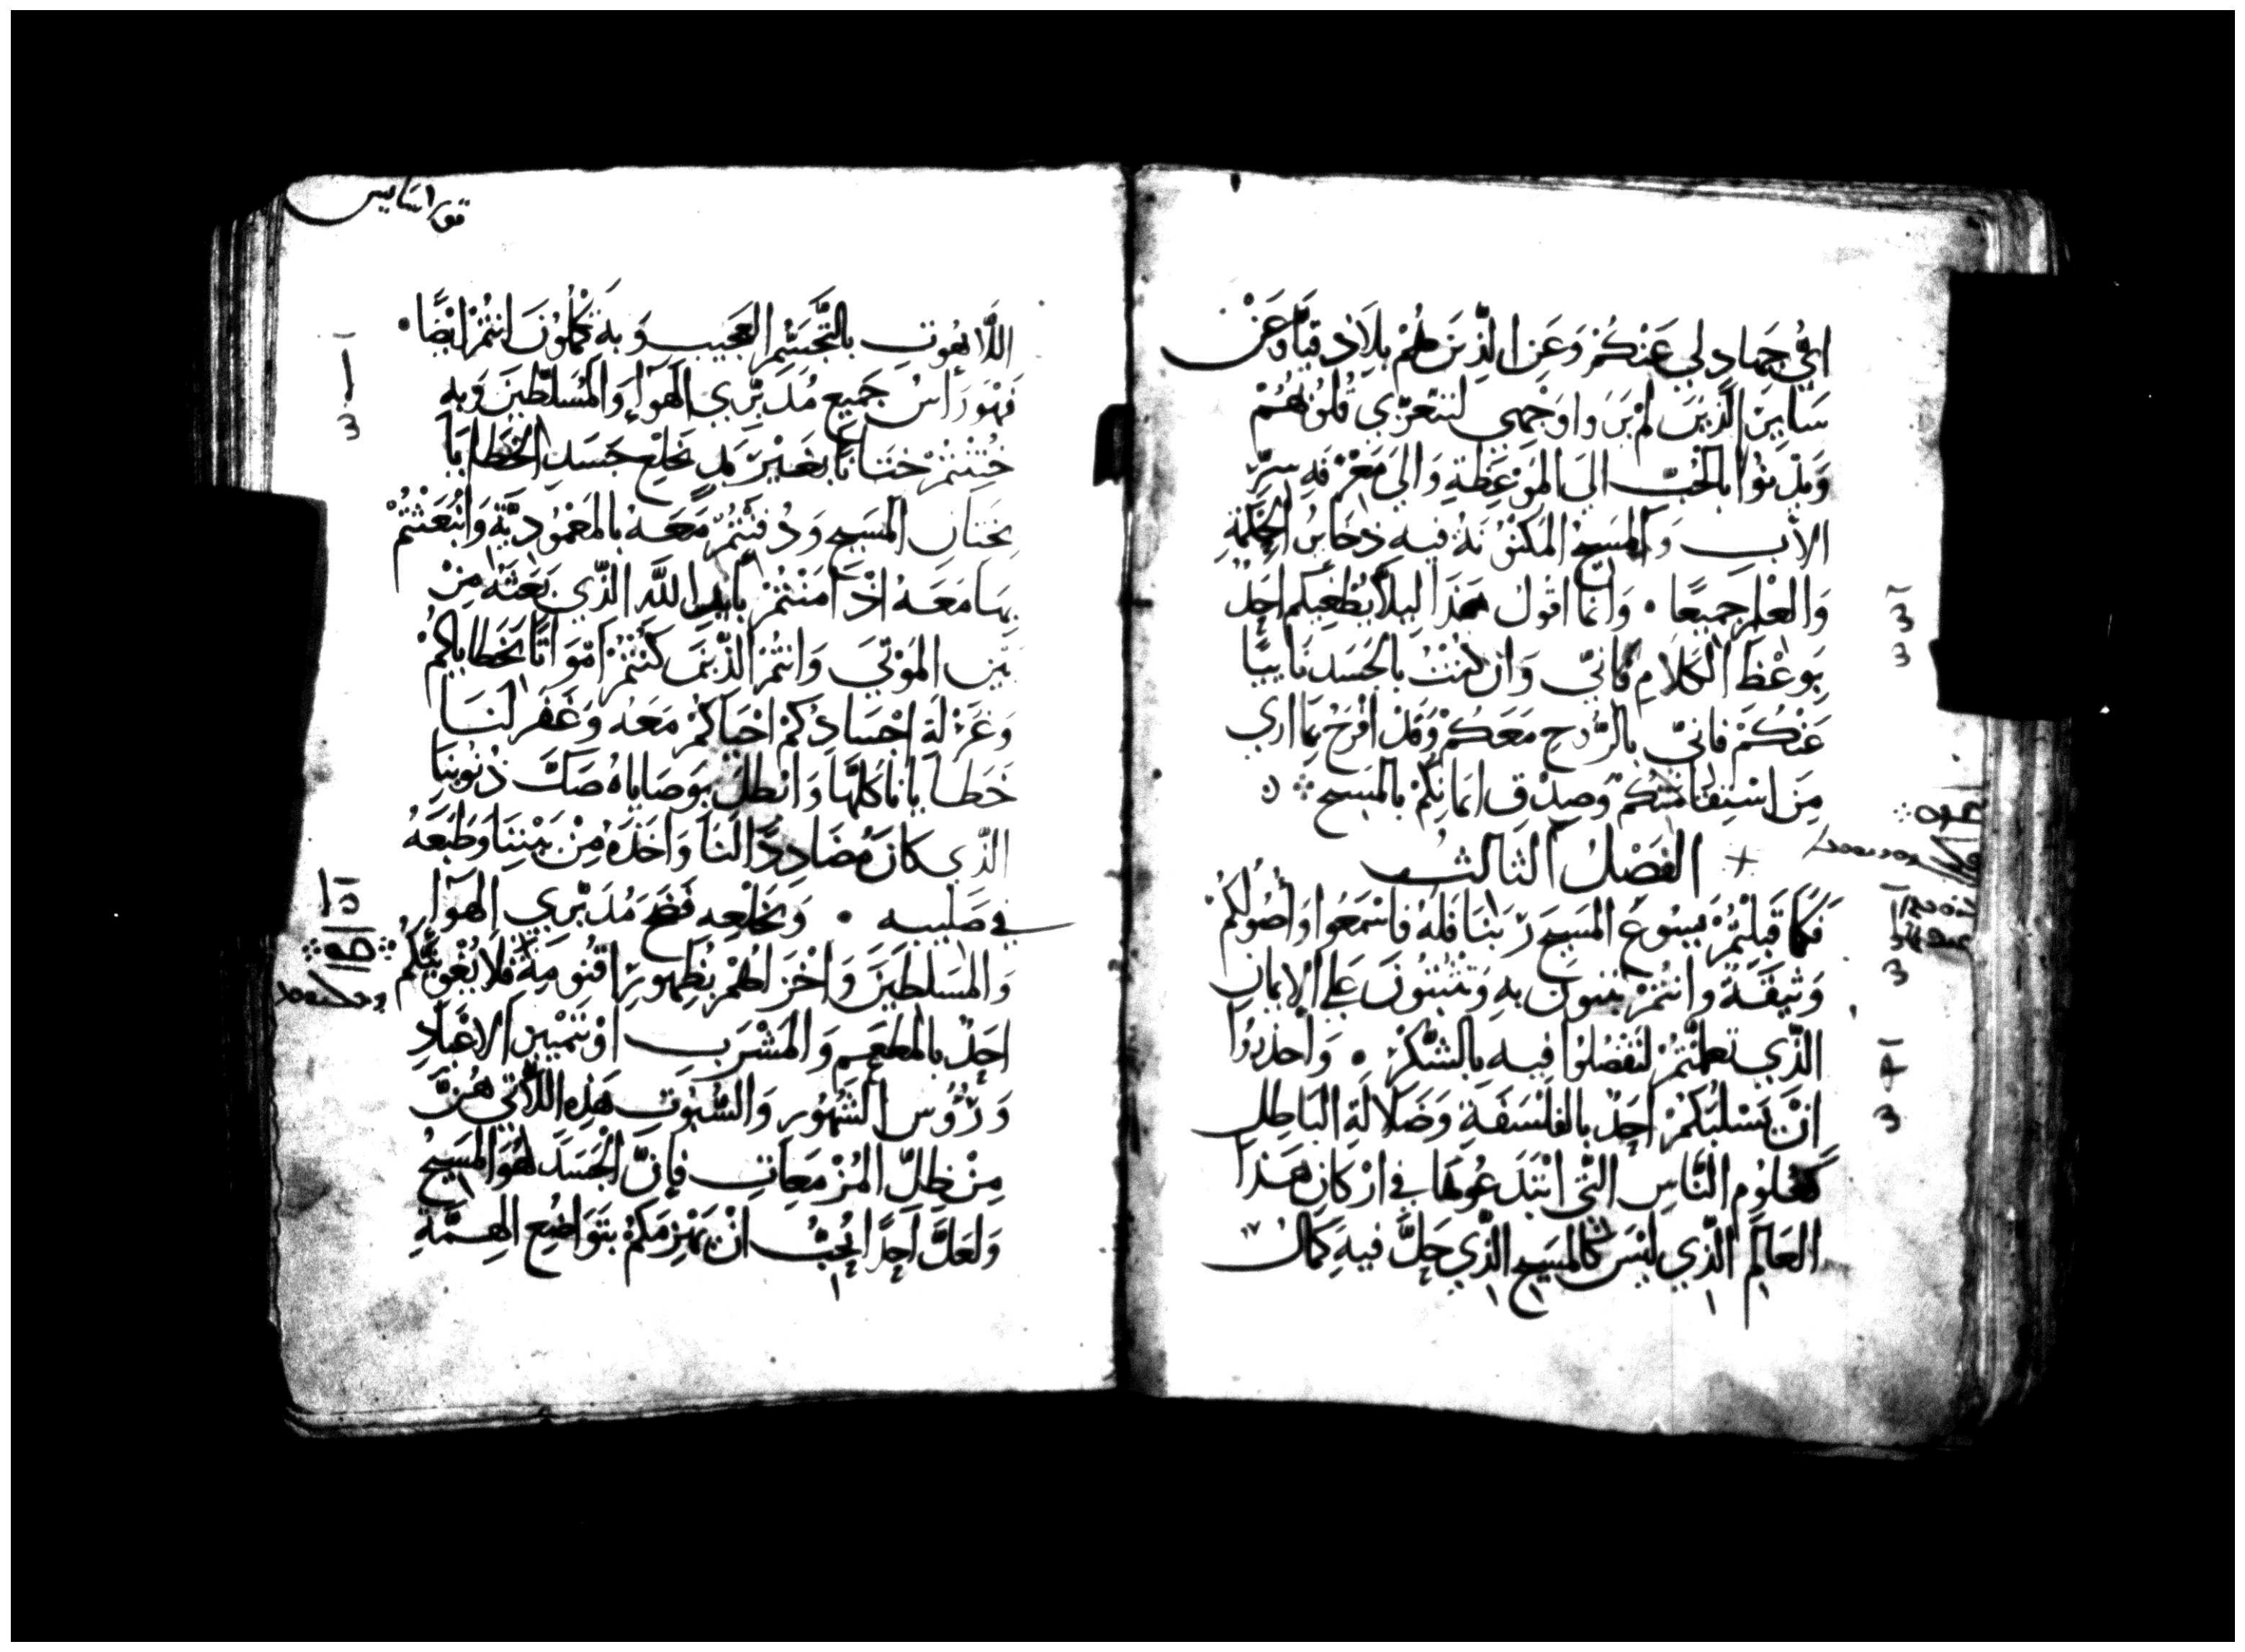 اي جهاد لي عنكم وعن الذين هم بلاذقيا وعن
ساير الذين لم يروا وجهي لتتعزي قلوبهم
بالحب الي الموعظة والي معرفه سر
الاب والمسيح المكنونة فيه ذخاير الحكمة
والعلم جميعا • وانما اقول هذا ليلا يطغيكم احد
بوعظ الكلام فاني وان كنت بالجسد نايبا
عنكم فاني بالروح معكم وقد افرح بما اري
من استقامتكم وصدق ايمانكم بالمسيح
الفصل الثالث
فكما قبلتم يسوع المسيح ربنا فله فاسمعوا واصولكم
وثيقة وانتم تبنون به وتثبتون علي الايمان
الذي تعلمتم لتفضلوا فيه بالشكر • واحذروا
ان يسلبكم احد بالفلسفة وضلالة الباطل
كعلوم الناس التي ابتدعوها في اركان هذا
العالم الذي ليس كالمسيح الذي حل فيه كمال
قولاسايس
اللاهوت بالتجسم العجيب وبه تكملون انتم ايضا •
فهو راس جميع مدبري الهوآء والمسلطين وبه
ختنتم ختانا بغير يد بخلع جسد الخطايا
بختان المسيح ودفنتم معه بالمعمودية وانبعثتم
بها معه اذ امنتم بايد الله الذي بعثه من
بين الموتي وانتم الذين كنتم امواتا بخطاياكم
وغرلة اجسادكم احياكم معه وغفر لنا
خطايانا كلها وابطل بوصاياه صك ذنوبنا
الذي كان مضاددا لنا واخذه من بيننا وطبعه
في صليبه • وبخلعه فضح مدبري الهوآ
والمسلطين واخزاهم بظهور اقنومه فلا يغوينكم
احد بالمطعم والمشرب او تمييز الاعياد
ورؤوس الشهور والسبوت هذه اللاتي هن
من ظل المزمعات فان الجسد لهو المسيح
ولعل احدا يحب ان يهزمكم بتواضع الهمة